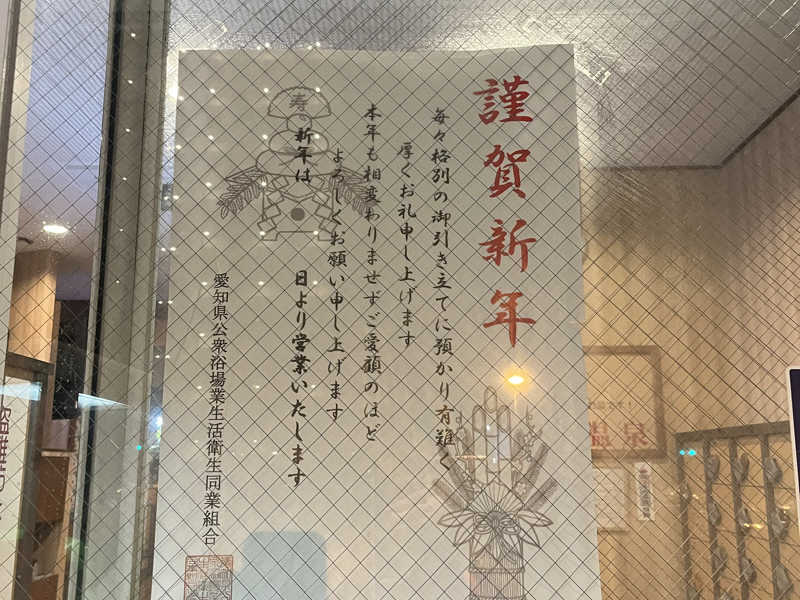 謹賀新年
毎々格別の御引き立てに預かり有難く
厚くお礼申し上げます
本年も相変わりませずご愛顧のほど
よろしくお願い申し上げます
新年は　日より営業いたします
愛知県公衆浴場業生活衛生同業組合
寿
温泉